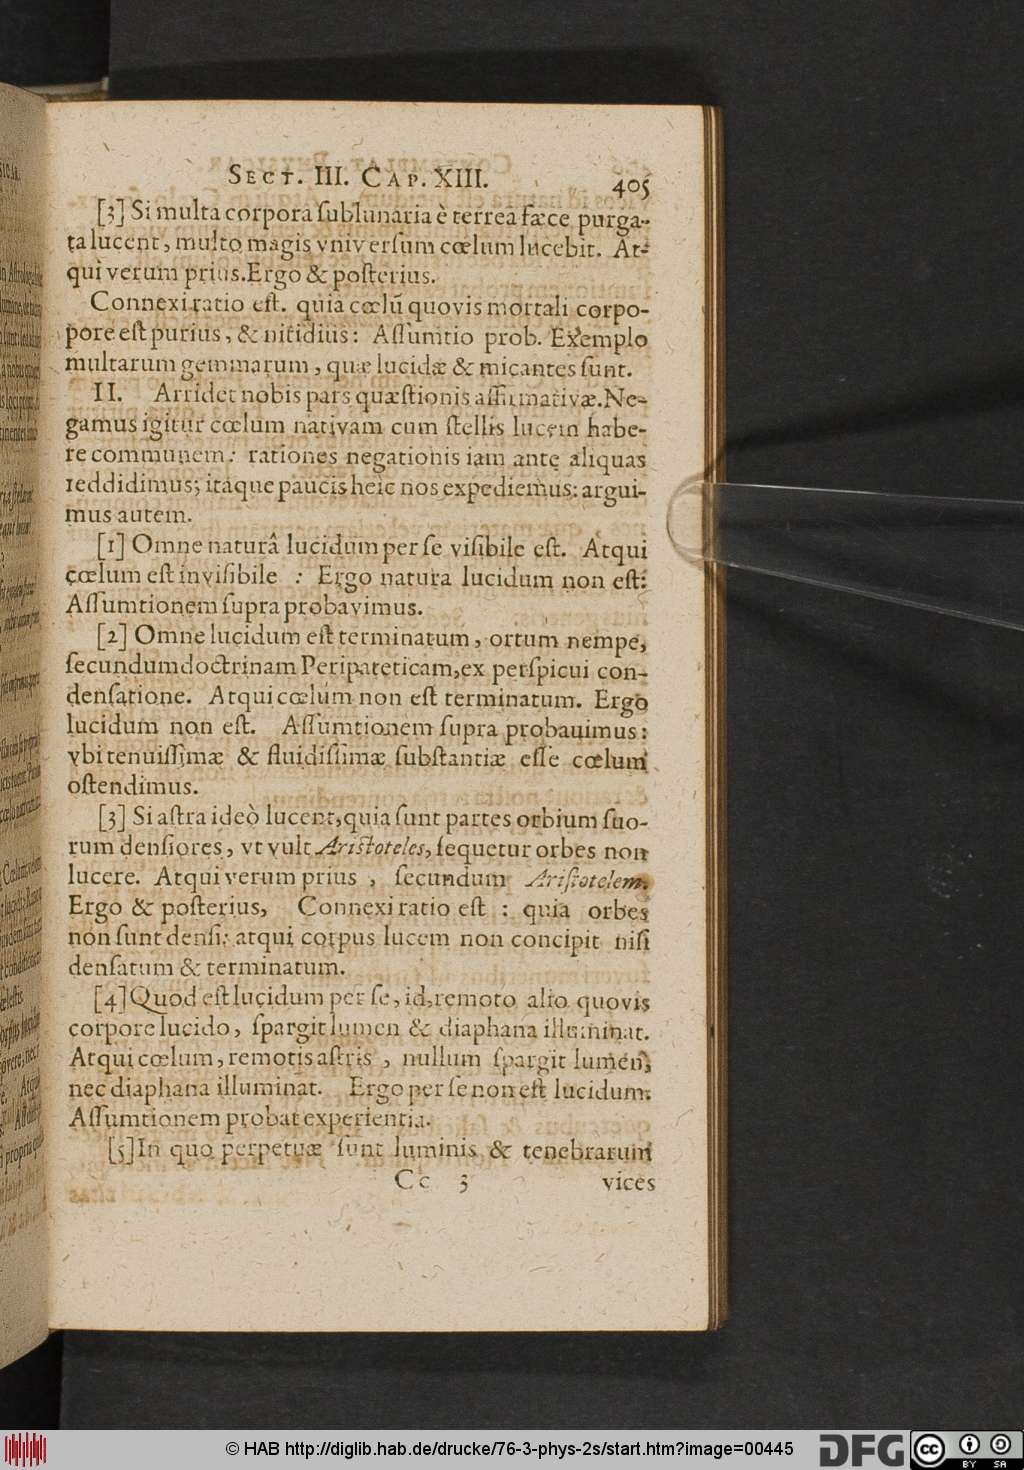 SECT. III. CAP. XIII. 405
[3] Si multa corpora ſublunaria è terreâ fæce purga-
ta lucent, multo magis vniverſum cœlum lucebit. At-
qui verum prius. Ergo & poſterius.
Connexi ratio eſt. quia cœlũ quovis mortali corpo-
pore eſt purius, & nitidius: Aſſumtio prob. Exemplo
multarum gemmarum, quæ lucidæ & micantes ſunt.
II. Arridet nobis pars quæſtionis affirmativæ. Ne-
gamus igitur cœlum nativam cum ſtellis lucem habe-
re communem: rationes negationis iam ante aliquas
reddidimus; itáque paucis heic nos expediemus: argui-
mus autem.
[1] Omne naturâ lucidum per ſe viſibile eſt. Atqui
cœlum eſt inviſibile : Ergo natura lucidum non eſt:
Aſſumtionem ſupra probavimus.
[2] Omne lucidum eſt terminatum, ortum nempe,
ſecundum doctrinam Peripateticam, ex perſpicui con-
denſatione. Atqui cœlum non eſt terminatum. Ergo
lucidum non eſt. Aſſumtionem ſupra probauimus:
vbi tenuiſſimæ & fluidiſſimæ ſubſtantiæ eſſe cœlum
oſtendimus.
[3] Si aſtra ideò lucent, quia ſunt partes orbium ſuo-
rum denſiores, vt vult Ariſtoteles, ſequetur orbes non
lucere. Atqui verum prius, ſecundum Ariſtotelem.
Ergo & poſterius, Connexi ratio eſt : quia orbes
non ſunt denſi; atqui corpus lucem non concipit niſi
denſatum & terminatum.
[4] Quod eſt lucidum per ſe, id, remoto alio quovis
corpore lucido, ſpargit lumen & diaphana illuminat.
Atqui cœlum, remotis aſtris, nullum ſpargit lumen,
nec diaphana illuminat. Ergo per ſe non eſt lucidum.
Aſſumtionem probat experientia.
[5] In quo perpetuæ ſunt luminis & tenebrarum
Cc 3 vices
© HAB http://diglib.hab.de/drucke/76-3-phys-2s/start.htm?image=00445
DFG
cc BY SA